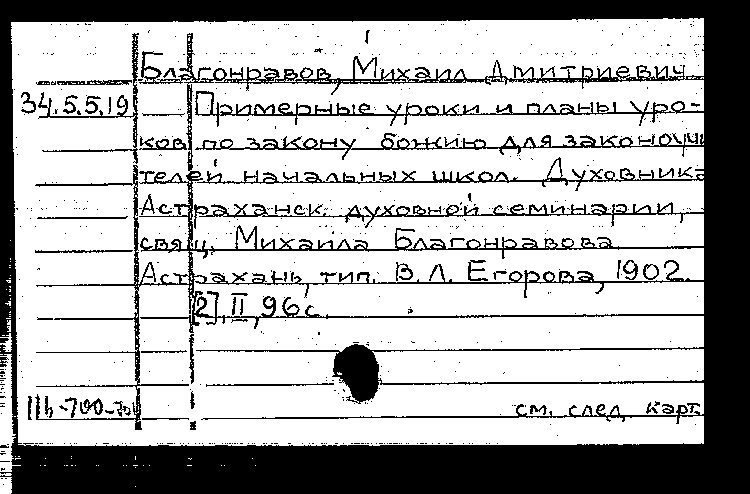 Благонравов, Михаил Дмитриевич
34.5.5.19 Примерные уроки и планы уро-
ков по закону божию для законоучи
телей начальных школ. Духовника
Астраханск. духовной семинарии,
свящ. Михаила Благонравова.
Астрахань, тип. В. Л. Егорова, 1902.
[2], II, 96 с.
см. след. карт.